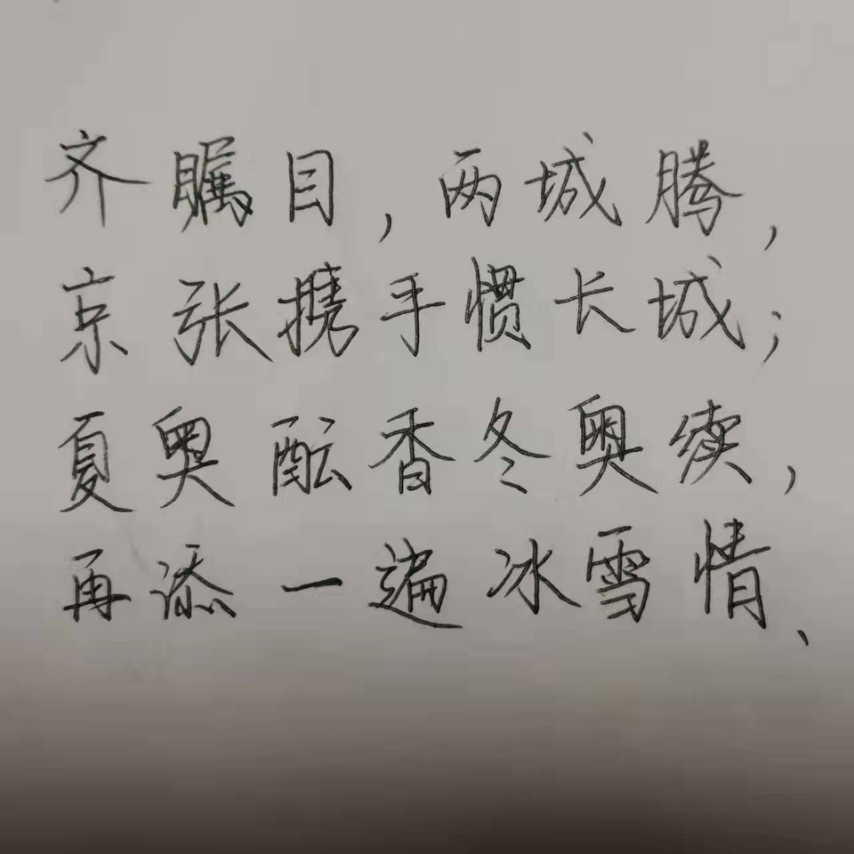 齐瞩目,两城腾,
京张携手惯长城;
夏奥酝香冬奥续,
再添一遍冰雪情、